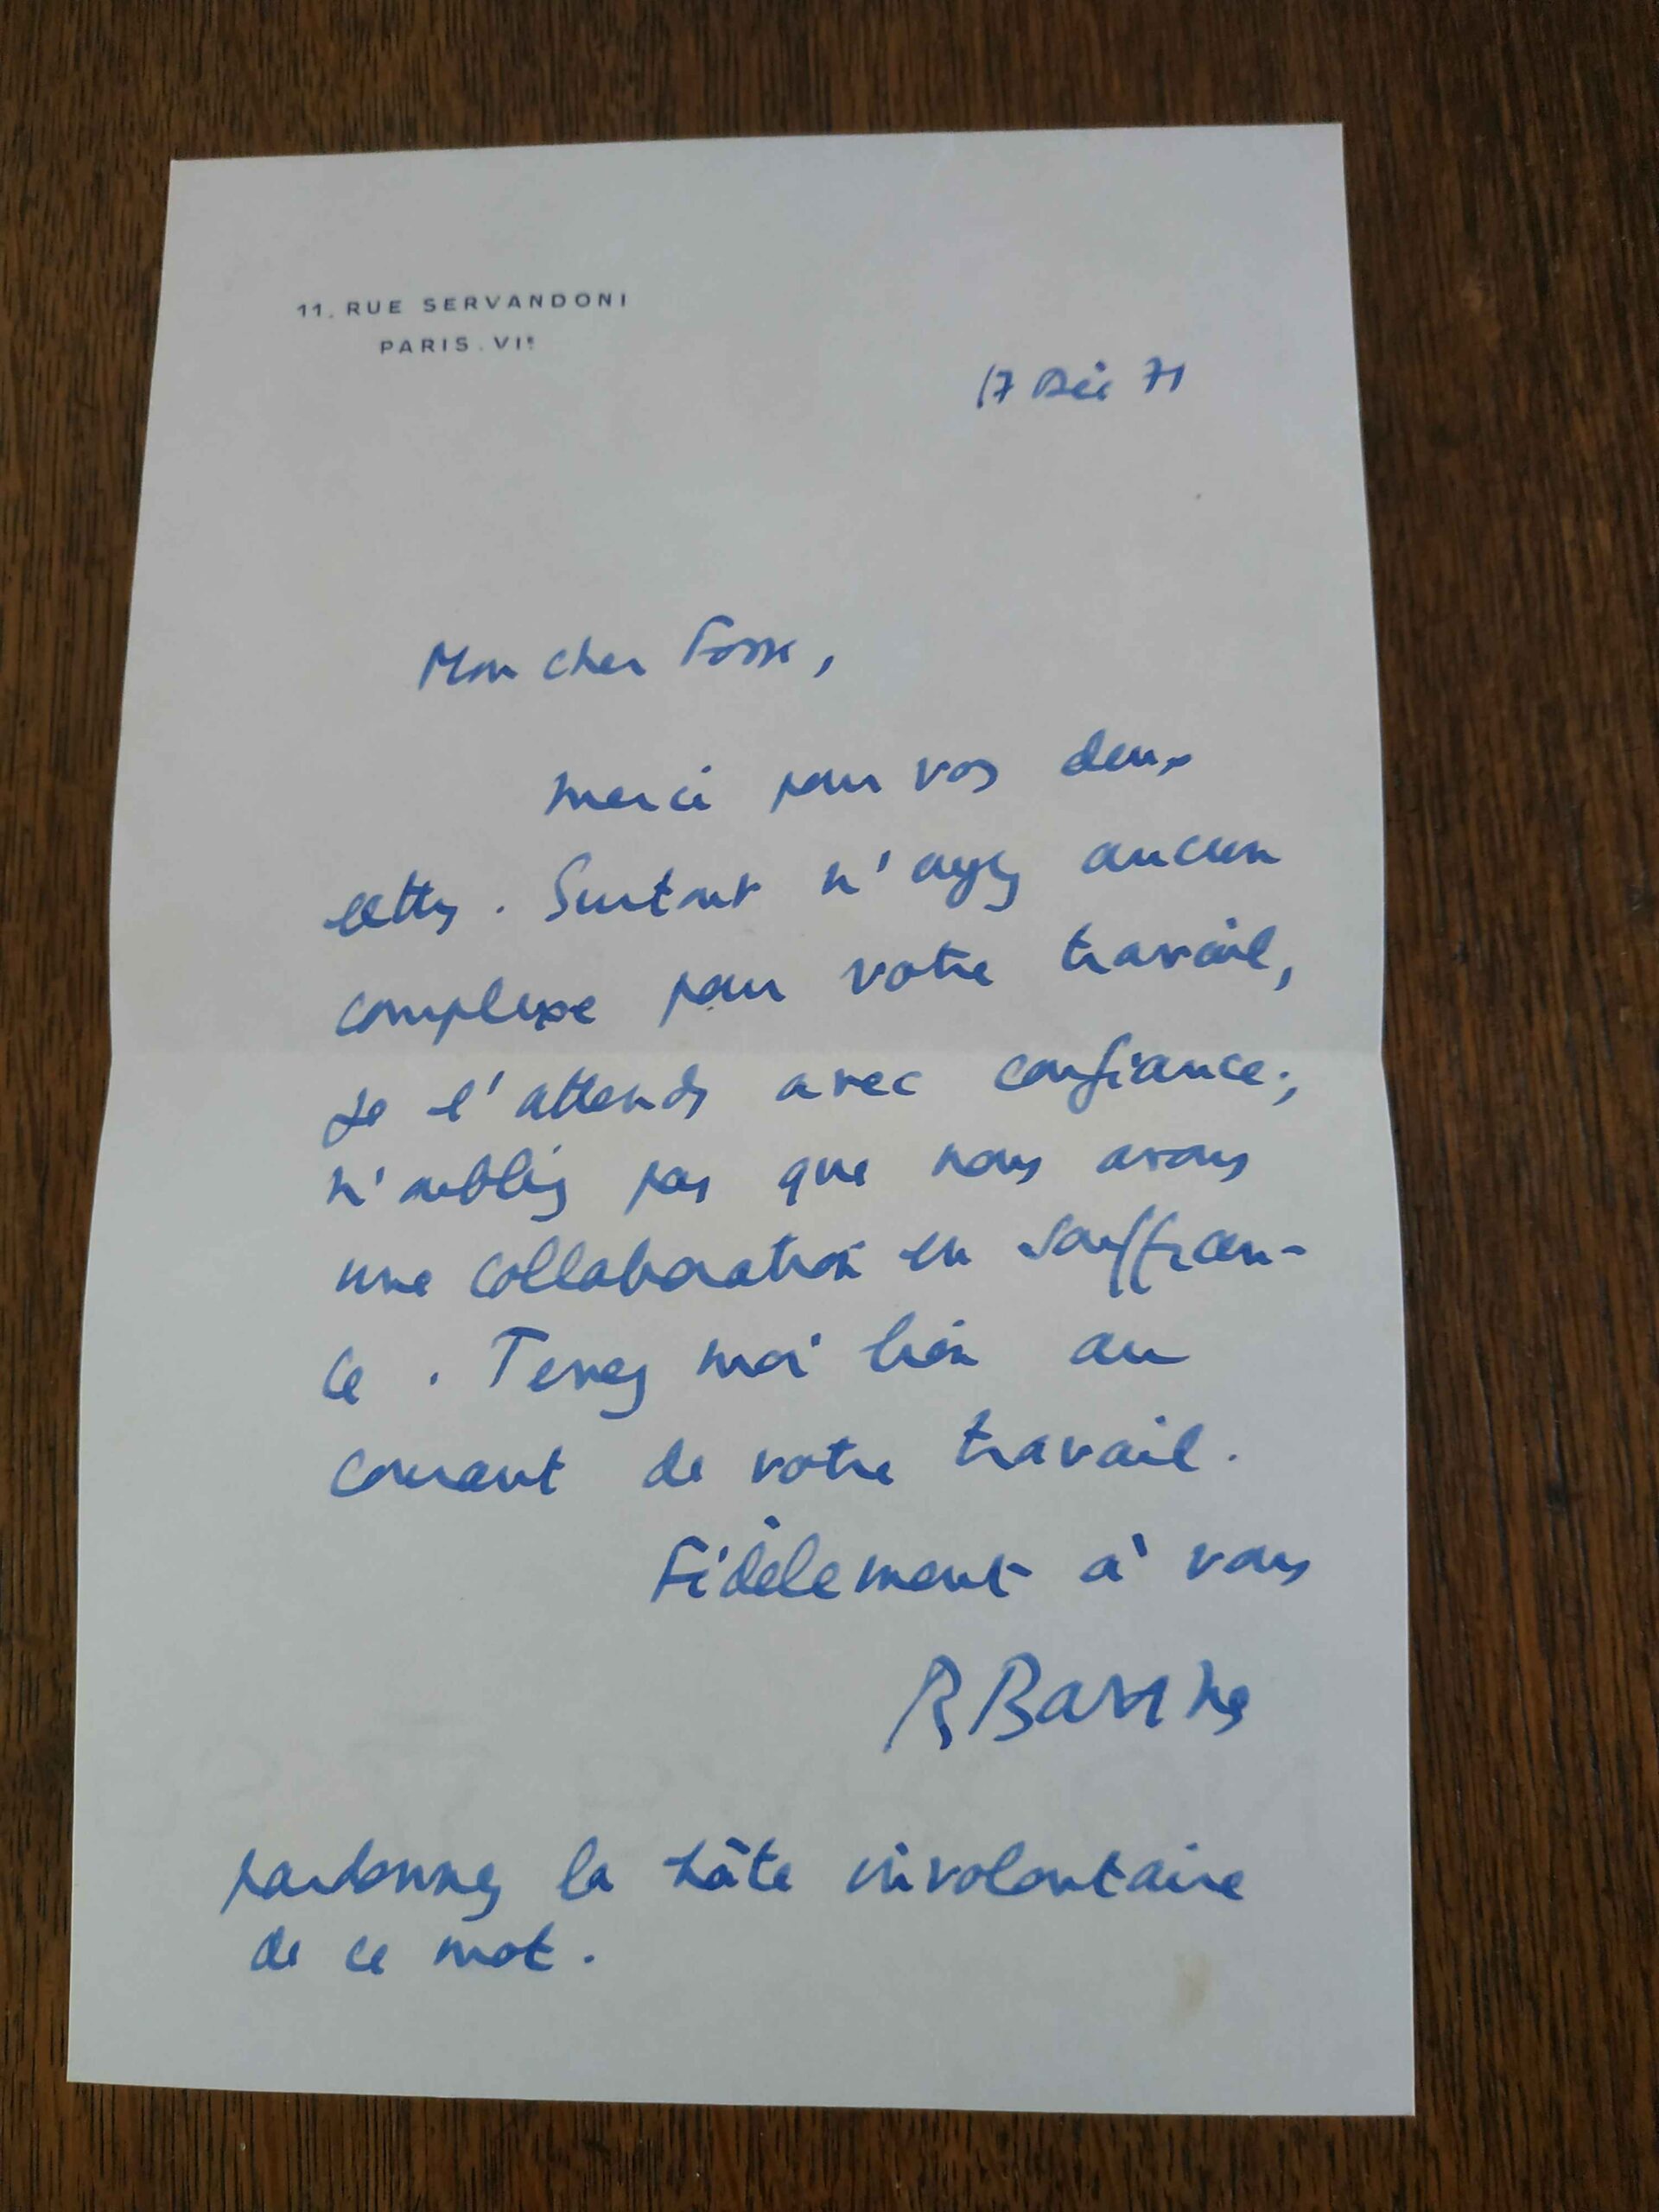 11, RUE SERVANDONI
PARIS. VIe
17 Déc 71
Mon cher
merci pour vos deux
lettres. Surtout n'ayez aucun
complexe pour votre travail,
je l'attends avec confiance ;
n'oubliez pas que nous avons
une collaboration en souffran-
ce. Tenez moi bien au
courant de votre travail.
Fidèlement à vous
R Barthes
pardonnez la hâte involontaire
de ce mot.